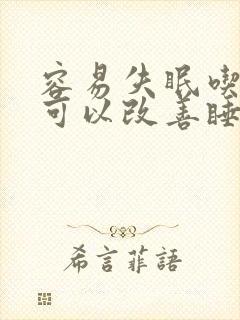 容易失眠喫
可以改善睡
希言菲語